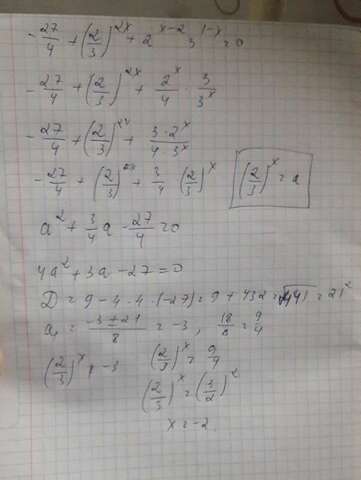 -27/4 + (2/3)^2x + 2^x-2 · 3^1-x = 0
-27/4 + (2/3)^2x + 2^x/4 · 3/3^x
-27/4 + (2/3)^2x + 3·2^x/4·3^x
-27/4 + (2/3)^2x + 3/4 (2/3)^x (2/3)^x = a
a² + 3/4 a - 27/4 = 0
4a² + 3a - 27 = 0
D = 9 - 4·4·(-27) = 9 + 432 = √441 = 21²
a₁ = -3±21/8 = -3, 18/8 = 9/4
(2/3)^x ≠ -3 (2/3)^x = 9/4
(2/3)^x = (3/2)²
x = -2